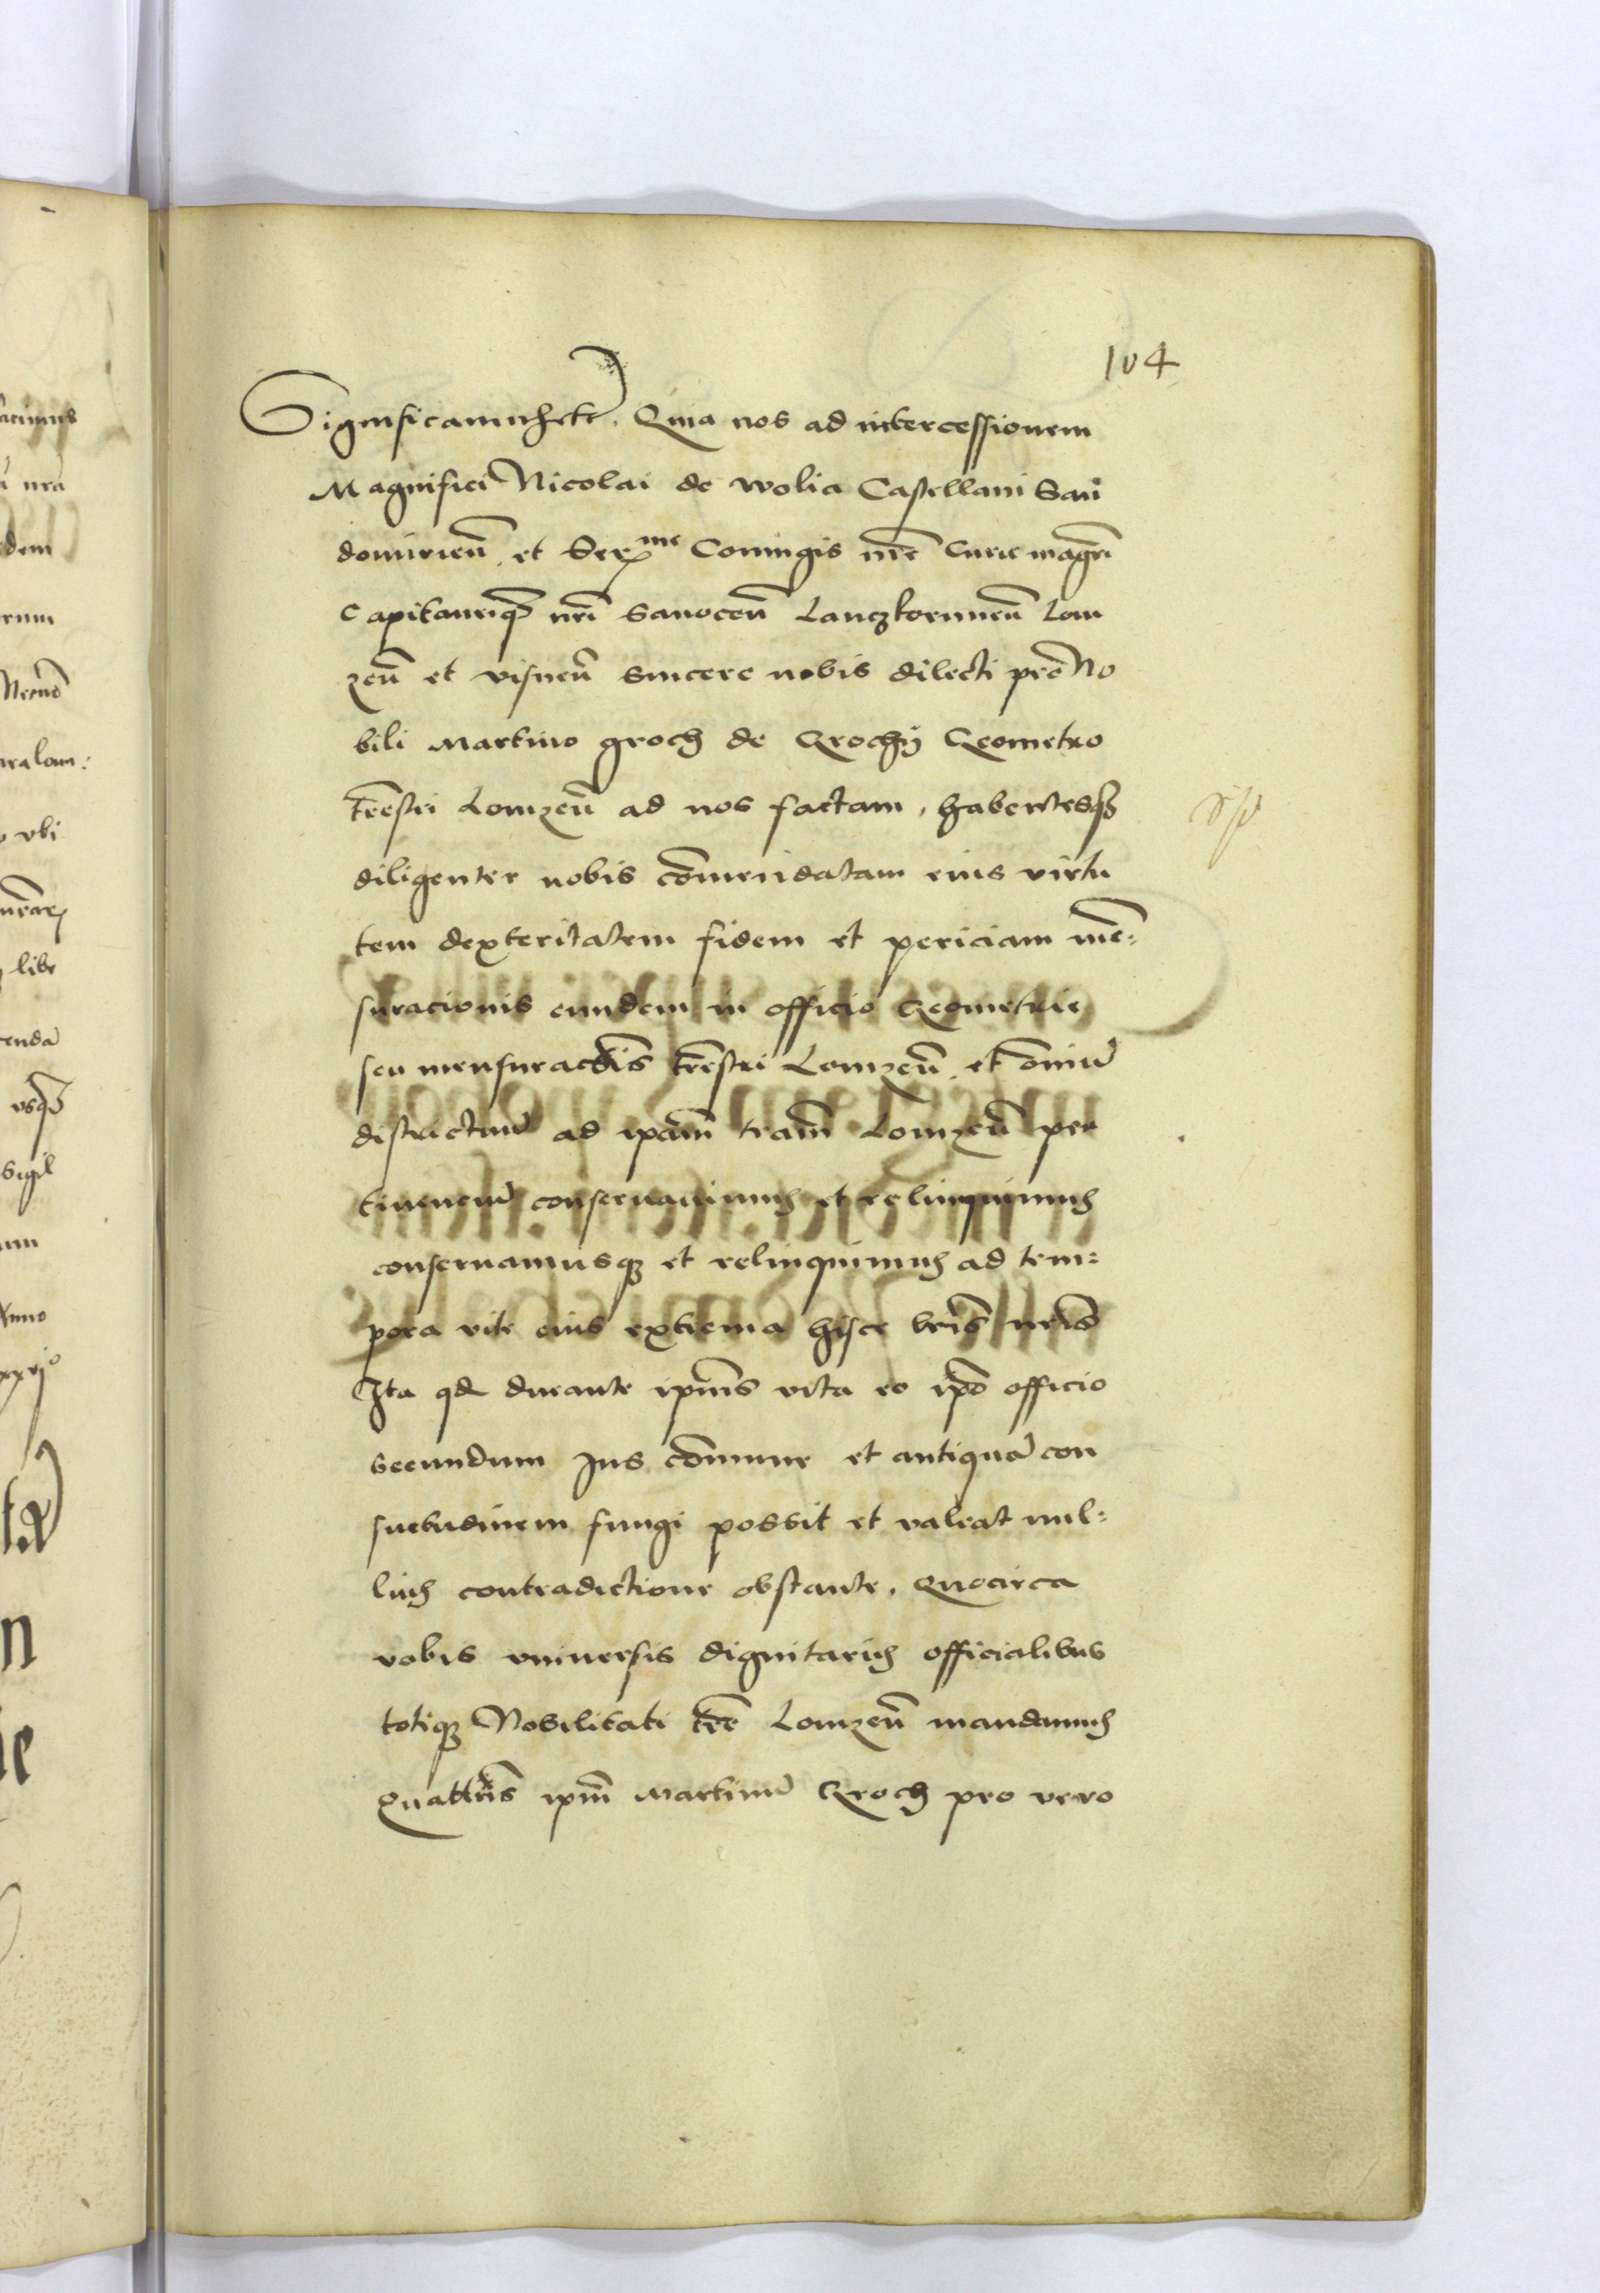 104
Significamus etc. Quia nos ad intercessionem
Magnifici Nicolai de wolia Castellani San
domirien̄. et Ser^me Coniugis nr̄e Curie magr̄i
Capitaneiq nr̄i Sanocen̄ Lanczkorunen̄ Lom
zen̄ et visnen̄ sincere nobis dilecti pro No
bili Martino groch de Grochy Geometro
trēstri Lomzen̄ ad nos factam, habentesq
diligenter nobis cōmendatam eius virtu
tem dexteritatem fidem et periciam men̄:
suracionis eundem in officio Geometrie
seu mensuracōis trēstri Lomzen̄. et om̄iū
districtuū ad ipam̄ tram̄ Lomzen̄ per
tinenciū conservavimus et relinquimus
conservamusq et relinquimus ad tem:
pora vite eius extrema hisce lrīs nrīs
Ita qd durante ipīus vita eo ipō officio
secundum Ius cōmune et antiquā con
suetudinem fungi possit et valeat nul:
lius contradictione obstante. Quocirca
vobis universis dignitariis officialibus
totiq Nobilitati trē Lomzen̄ mandamus
Quattn̄s ipm̄ Martinū Groch pro vero